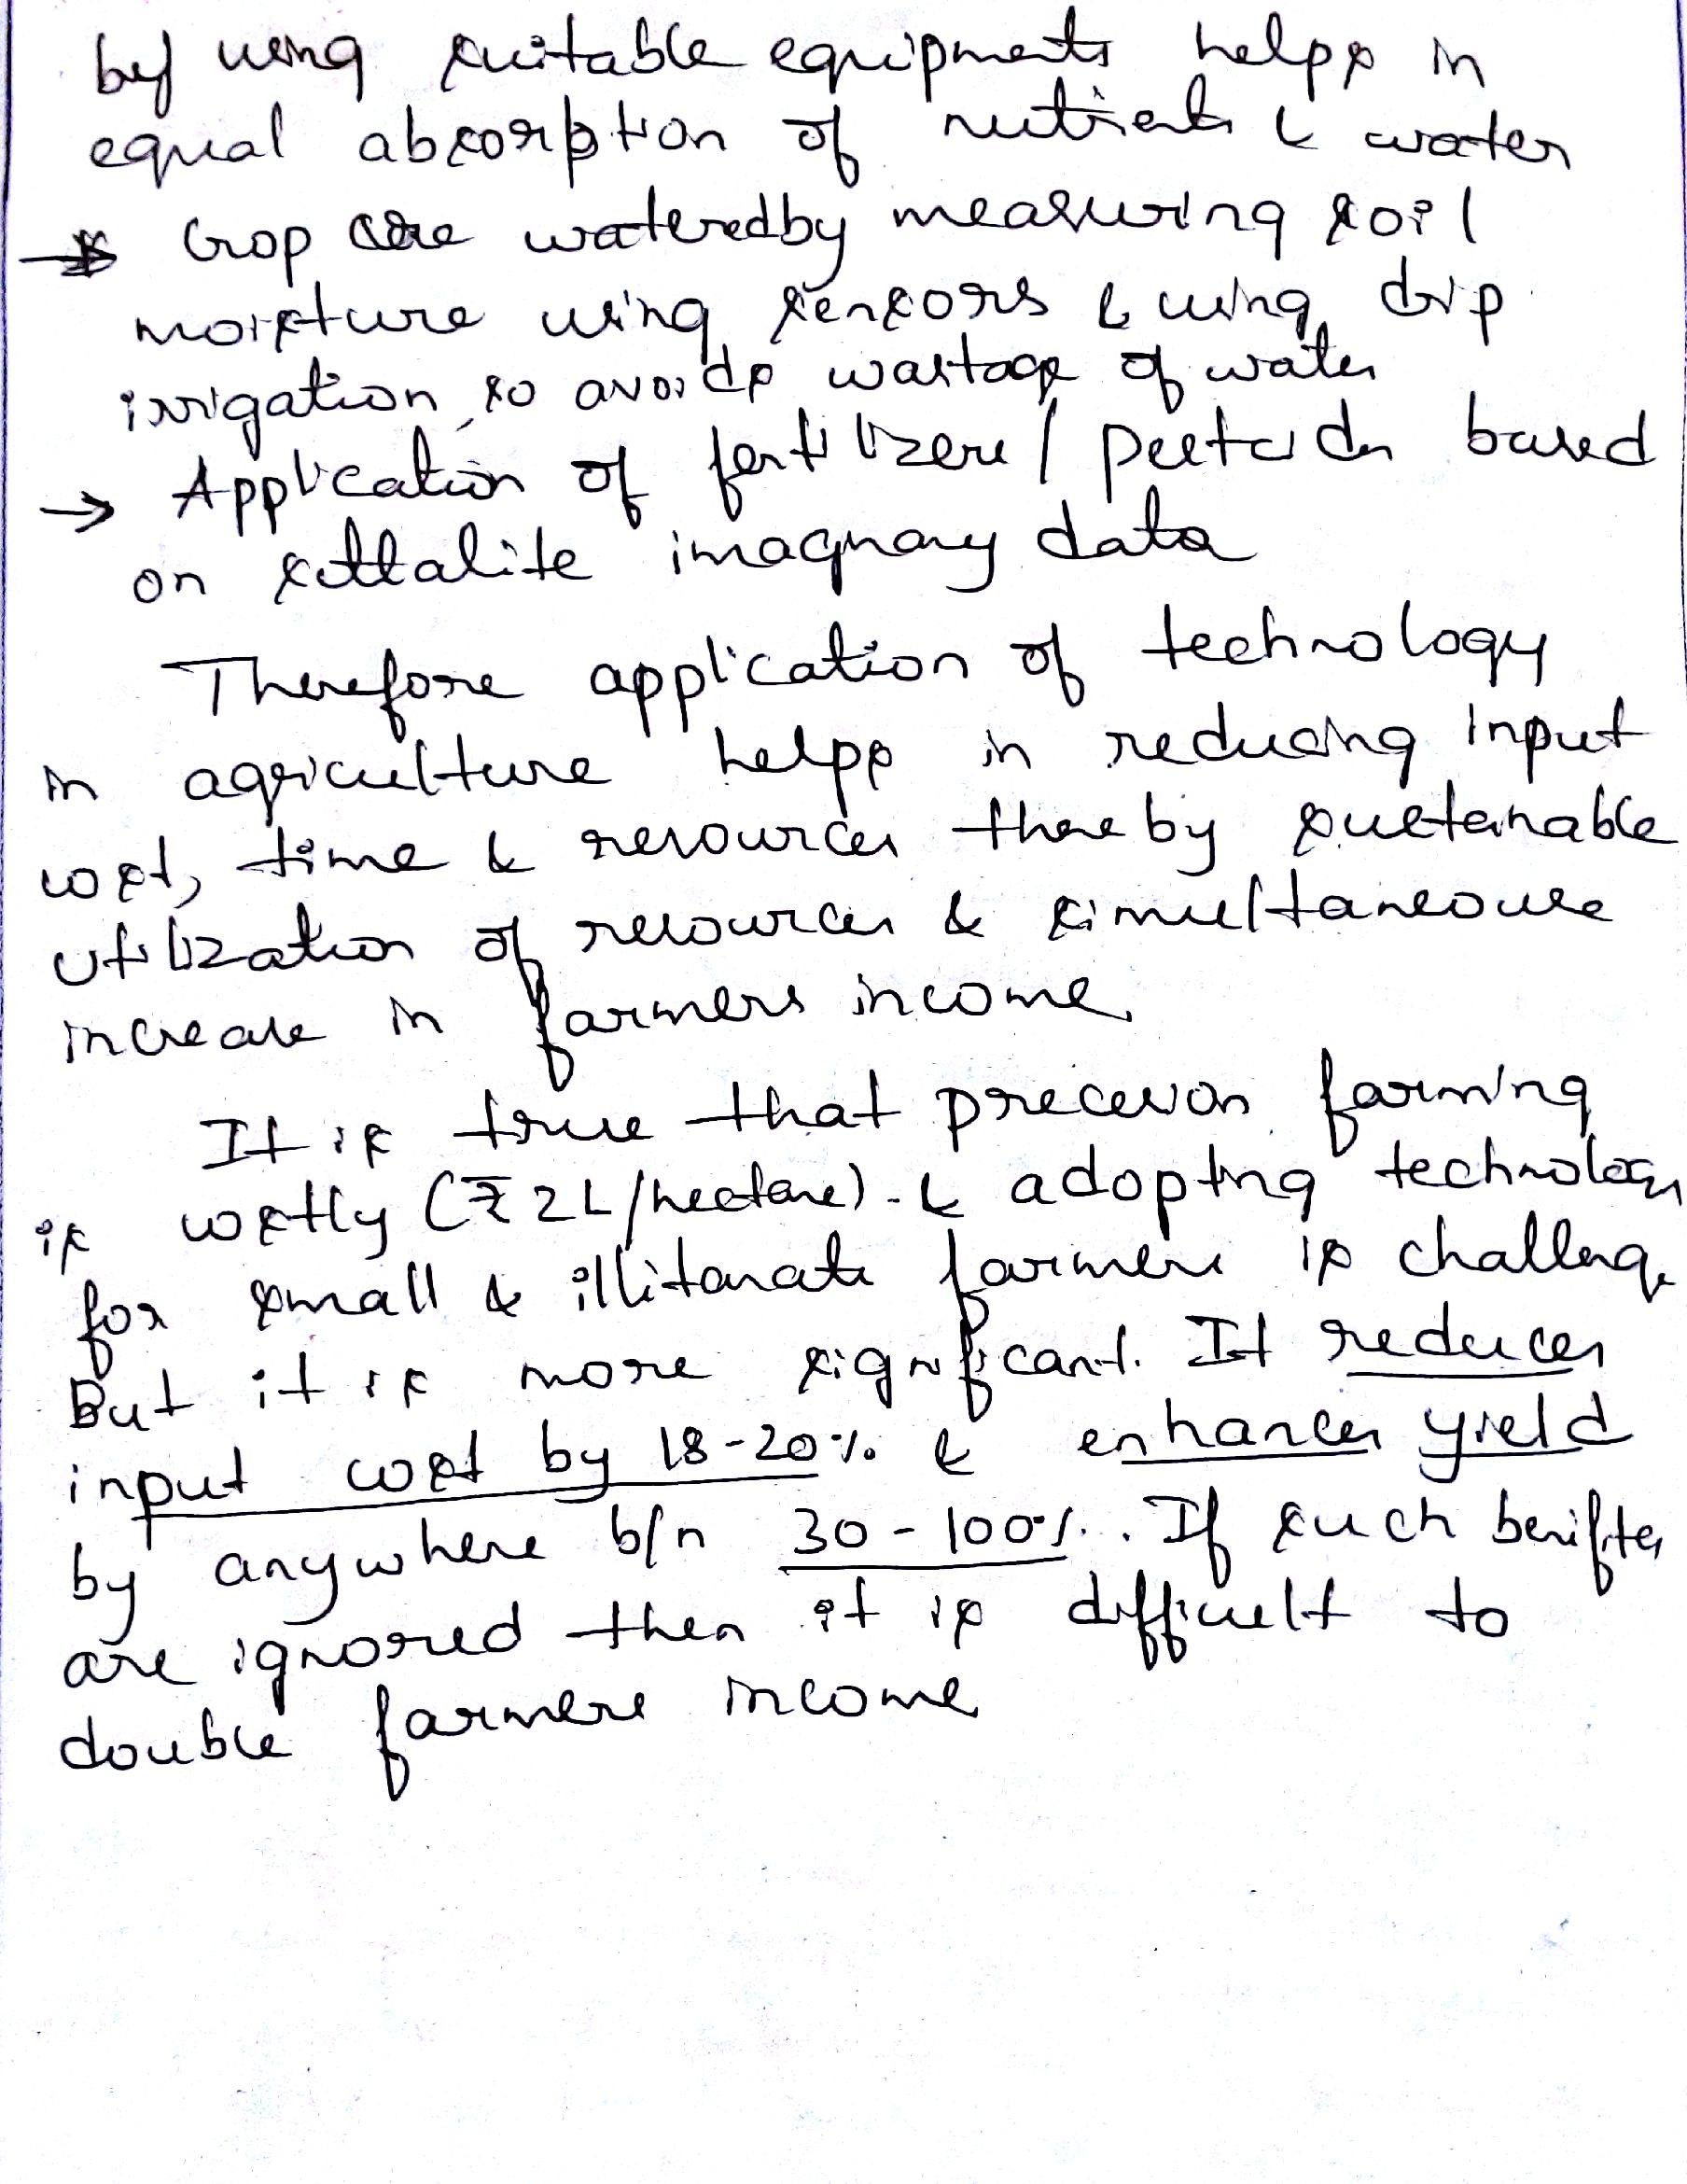 by using suitable equipments helps in
equal absorption of nutrients & water
→ Crop are watered by measuring soil
moisture using sensors & using drip
irrigation, so avoids wastage of water
→ Application of fertilizers / pestcides based
on sattalite imagnary data
Therefore application of technology
in agriculture helps in reducing input
cost, time & resources thereby sustainable
utilization of resources & simultaneous
increase in farmers income.
It is true that precesion farming
is costly (₹ 2L/hectare) - & adopting technology
for small & illitarate farmers is challenge
But it is more significant. It reduces
input cost by 18-20% & enhances yield
by anywhere b/n 30 - 100%. If such benifites
are ignored then it is difficult to
double farmers income